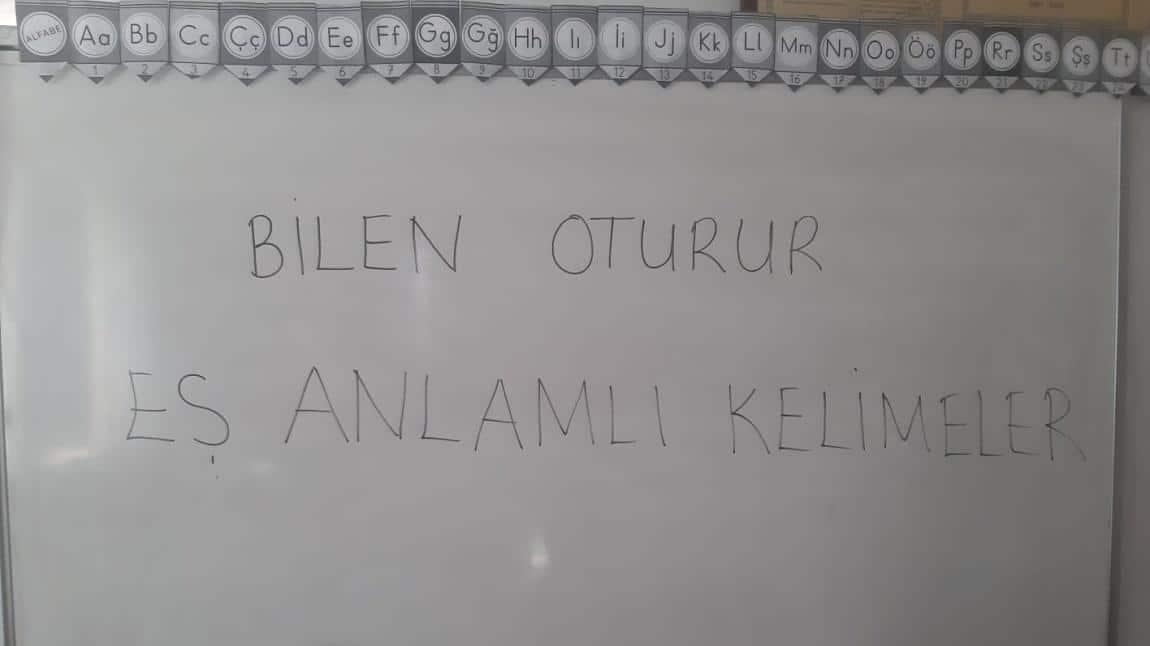 ALFABE Aa Bb Cc Çç Dd Ee Ff Gg Ğğ Hh Iı İi Jj Kk Ll Mm Nn Oo Öö Pp Rr Ss Şş Tt
1 2 3 4 5 6 7 8 9 10 11 12 13 14 15 16 17 18 19 20 21 22 23 24
BİLEN OTURUR
EŞ ANLAMLI KELİMELER